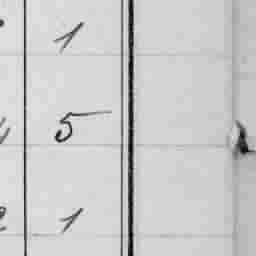 1
5
1